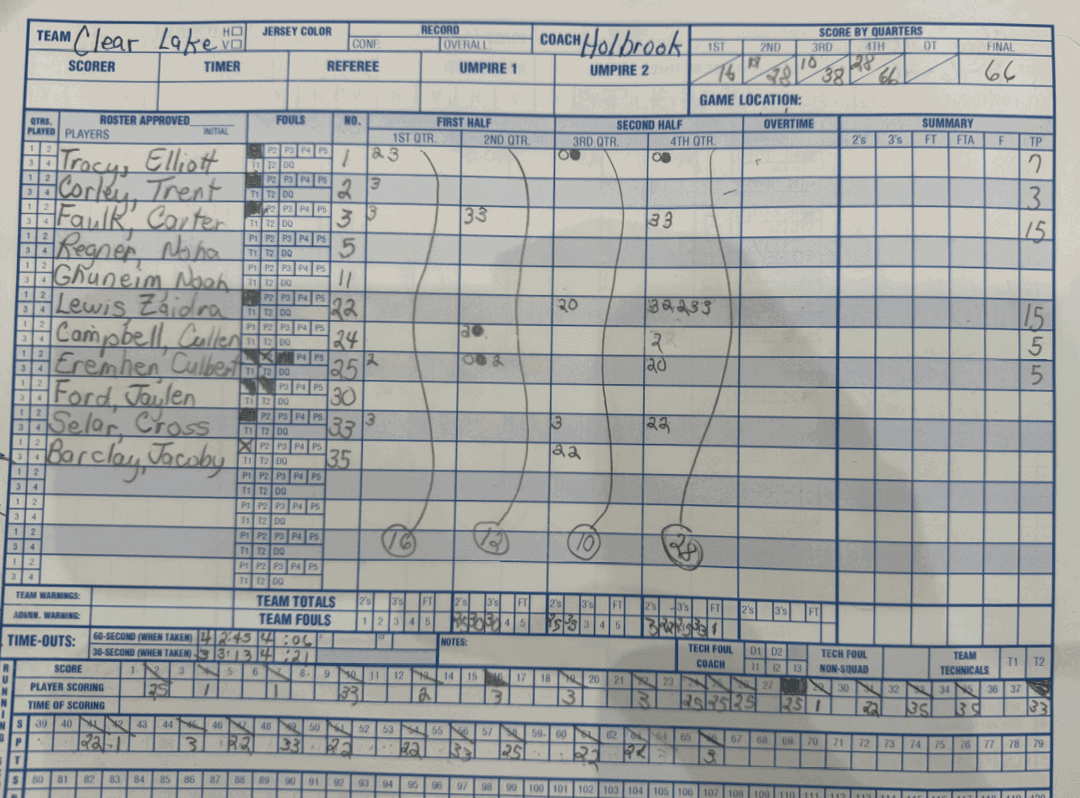 TEAM Clear Lake H V JERSEY COLOR RECORD COACH Holbrook SCORE BY QUARTERS
CONF: OVERALL: 1ST 2ND 3RD 4TH OT FINAL
SCORER TIMER REFEREE UMPIRE 1 UMPIRE 2 16 12 28 10 38 28 66 66
GAME LOCATION:
QTRS. PLAYED ROSTER APPROVED FOULS NO. FIRST HALF SECOND HALF OVERTIME SUMMARY
PLAYERS INITIAL 1ST QTR. 2ND QTR. 3RD QTR. 4TH QTR. 2's 3's FT FTA F TP
1 2 Tracy, Elliott P2 P3 P4 P5 1 23 7
3 4 T1 T2 DQ
1 2 Corley, Trent P2 P3 P4 P5 2 3 3
3 4 T1 T2 DQ
1 2 Faulk, Carter P2 P3 P4 P5 3 3 33 33 15
3 4 T1 T2 DQ
1 2 Regner, Noha P1 P2 P3 P4 P5 5
3 4 T1 T2 DQ
1 2 Ghuneim Noah P1 P2 P3 P4 P5 11
3 4 T1 T2 DQ
1 2 Lewis Zaidra P2 P3 P4 P5 22 20 32233 15
3 4 T1 T2 DQ
1 2 Campbell, Cullen P1 P2 P3 P4 P5 24 2 2 5
3 4 T1 T2 DQ
1 2 Eremhen, Culbert P4 P5 25 2 2 20 5
3 4 T1 T2 DQ
1 2 Ford, Jaylen P3 P4 P5 30
3 4 T1 T2 DQ
1 2 Selar, Cross P2 P3 P4 P5 33 3 3 22
3 4 T1 T2 DQ
1 2 Barclay, Jacoby P2 P3 P4 P5 35 22
3 4 T1 T2 DQ
1 2 P1 P2 P3 P4 P5
3 4 T1 T2 DQ
1 2 P1 P2 P3 P4 P5
3 4 T1 T2 DQ
1 2 P1 P2 P3 P4 P5 16 12 10 28
3 4 T1 T2 DQ
1 2 P1 P2 P3 P4 P5
3 4 T1 T2 DQ
TEAM WARNINGS: TEAM TOTALS 2's 3's FT 2's 3's FT 2's 3's FT 2's 3's FT 2's 3's FT
ADMN. WARNING: TEAM FOULS 1 2 3 4 5 4 5 3 4 5
TIME-OUTS: 60-SECOND (WHEN TAKEN) 4 2:45 4 :06 OT NOTES: TECH FOUL COACH D1 D2 TECH FOUL NON-SQUAD TEAM TECHNICALS T1 T2
30-SECOND (WHEN TAKEN) 3 3:13 4 :21 I1 I2 I3
RUNNING SCORE 1 2 3 4 5 6 7 8 9 10 11 12 13 14 15 16 17 18 19 20 21 22 23 24 25 26 27 29 30 31 32 33 34 35 36 37
PLAYER SCORING 25 1 1 33 2 3 3 3 25 25 25 25 1 22 35 35 33
TIME OF SCORING
S 39 40 41 42 43 44 45 46 47 48 49 50 51 52 53 54 55 56 57 58 59 60 61 62 63 64 65 66 67 68 69 70 71 72 73 74 75 76 77 78 79
P 22 1 3 22 33 22 22 33 25 22 24 3
T
S 80 81 82 83 84 85 86 87 88 89 90 91 92 93 94 95 96 97 98 99 100 101 102 103 104 105 106 107 108 109 110 111 112 113 114 115 116 117 118 119 120